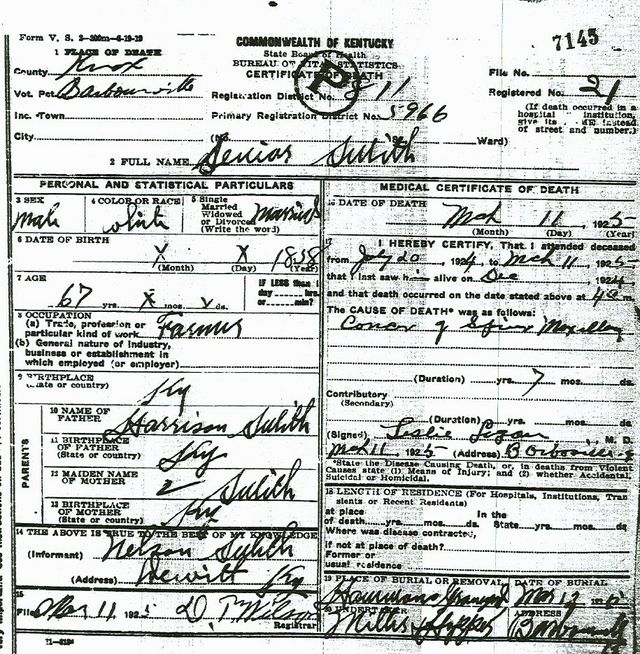 Form V. S. 2-300m-6-19-19
COMMONWEALTH OF KENTUCKY
State Board of Health
BUREAU OF VITAL STATISTICS
CERTIFICATE OF DEATH
7145
1 PLACE OF DEATH
County Knox
Vot. Pct. Barbourville
Inc. Town
City (No. St. Ward)
P
Registration District No. 811
Primary Registration District No. 5966
File No.
Registered No. 21
(If death occurred in a
hospital institution,
give its instead
of street and number.)
2 FULL NAME
PERSONAL AND STATISTICAL PARTICULARS
3 SEX
Male
4 COLOR OR RACE
white
5 Single
Married
Widowed
or Divorced
(Write the word)
Married
6 DATE OF BIRTH
X X 1858
(Month) (Day) (Year)
7 AGE
67 yrs. X mos. ds.
IF LESS than 1
day hrs.
or min?
8 OCCUPATION
(a) Trade, profession or
particular kind of work Farmer
(b) General nature of industry,
business or establishment in
which employed (or employer)
9 BIRTHPLACE
(State or country)
Ky
PARENTS
10 NAME OF
FATHER
Harrison
11 BIRTHPLACE
OF FATHER
(State or country)
Ky
12 MAIDEN NAME
OF MOTHER
13 BIRTHPLACE
OF MOTHER
(State or country)
Ky
14 THE ABOVE IS TRUE TO THE BEST OF MY KNOWLEDGE
(Informant) Nelson
(Address) Hewitt Ky
15
Filed Mar 11 1925 D. T. Wilson
Registrar
71-8184
MEDICAL CERTIFICATE OF DEATH
16 DATE OF DEATH
Mch 11, 1925
(Month) (Day) (Year)
17
I HEREBY CERTIFY, That I attended deceased
from July 20 1924, to Mch 11, 1925
that I last saw h alive on Dec 1924
and that death occurred on the date stated above at 4 m
The CAUSE OF DEATH* was as follows:
Cancer of
(Duration) yrs. 7 mos. ds.
Contributory
(Secondary)
(Duration) yrs. mos. ds.
(Signed) Leslie Logan M. D.
Mch 11 1925 (Address)
*State the Disease Causing Death, or, in deaths from Violent
Causes state (1) Means of Injury; and (2) whether Accidental,
Suicidal or Homicidal.
18 LENGTH OF RESIDENCE (For Hospitals, Institutions, Tran
sients or Recent Residents)
at place In the
of death yrs. mos. ds. State yrs. mos. ds.
Where was disease contracted,
if not at place of death?
Former or
usual residence
19 PLACE OF BURIAL OR REMOVAL DATE OF BURIAL
Mar 12
20 UNDERTAKER ADDRESS